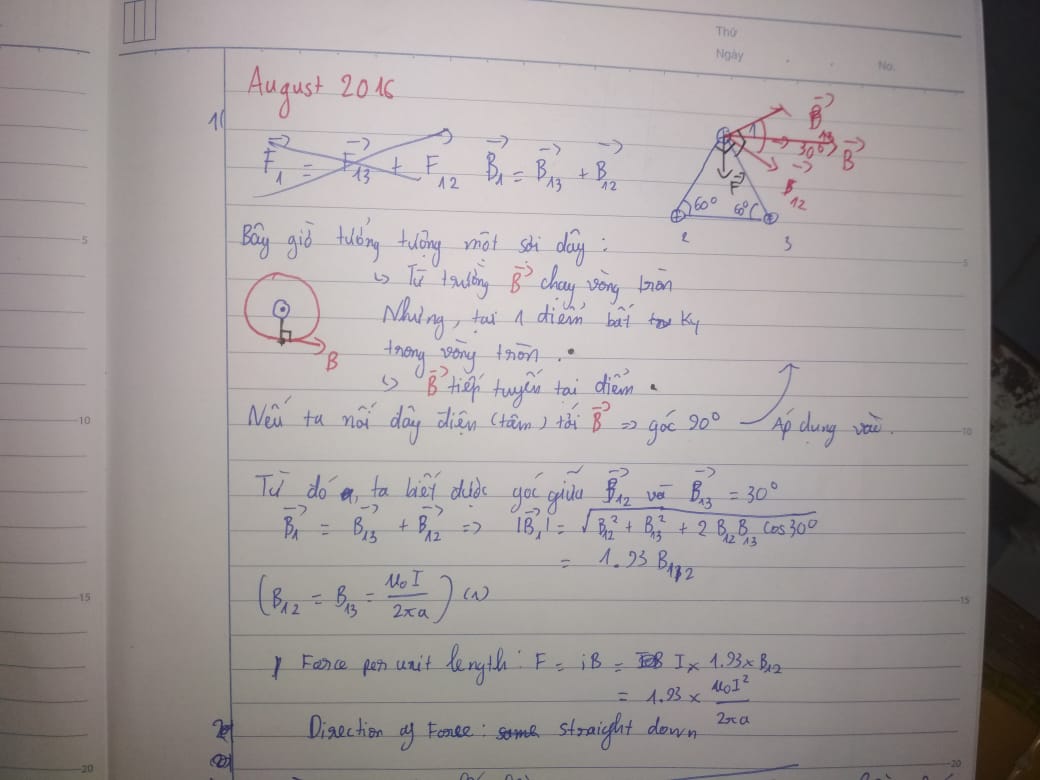 Thứ
Ngày
No.
August 2016
1(
F₁ = F₁₃ + F₁₂ B₁ = B₁₃ + B₁₂
B₁₃
1
30°
B
B₁₂
F
60° 60°
2 3
Bây giờ tưởng tượng một sợi dây:
↳ Từ trường B chạy vòng tròn
Nhưng, tại 1 điểm bất kỳ
trong vòng tròn.
B
↳ B tiếp tuyến tại điểm
Nếu ta nối dây điện (tâm) tới B => góc 90° Áp dụng vào.
Từ đó, ta biết được góc giữa B₁₂ và B₁₃ = 30°
B₁ = B₁₃ + B₁₂ => |B₁| = √(B₁₂² + B₁₃² + 2 B₁₂ B₁₃ cos 30°)
= 1.93 B₁₂
(B₁₂ = B₁₃ = μ₀I / 2πa) (1)
Force per unit length: F = iB = I × 1.93 × B₁₂
= 1.93 × μ₀I² / 2πa
Direction of Force: some straight down
5
10
15
20
5
10
15
20